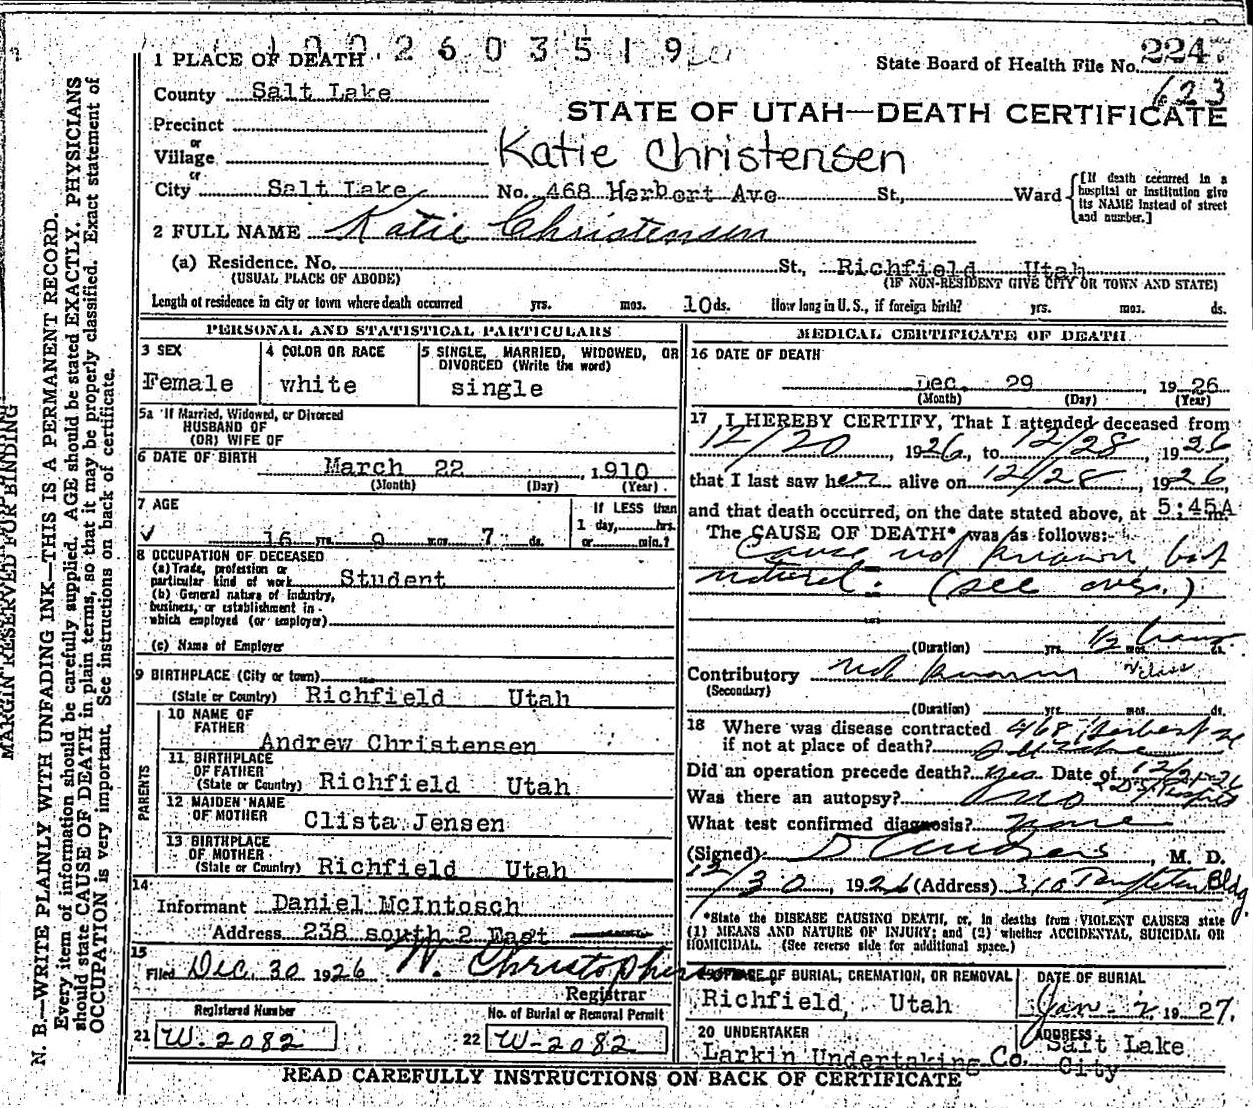 1 0 0 2 6 0 3 5 1 9
1 PLACE OF DEATH
State Board of Health File No. 2247
623
County Salt Lake
STATE OF UTAH—DEATH CERTIFICATE
Precinct
or
Village
Katie Christensen
or
City Salt Lake No. 468 Herbert Ave St., Ward
[If death occurred in a hospital or institution give its NAME instead of street and number.]
2 FULL NAME Katie Christensen
(a) Residence. No. St., Richfield Utah
(USUAL PLACE OF ABODE) (IF NON-RESIDENT GIVE CITY OR TOWN AND STATE)
Length of residence in city or town where death occurred yrs. mos. 10 ds. How long in U.S., if foreign birth? yrs. mos. ds.
PERSONAL AND STATISTICAL PARTICULARS
3 SEX
Female
4 COLOR OR RACE
white
5 SINGLE, MARRIED, WIDOWED, OR
DIVORCED (Write the word)
single
5a If Married, Widowed, or Divorced
HUSBAND OF
(OR) WIFE OF
6 DATE OF BIRTH
March 22, 1910
(Month) (Day) (Year)
7 AGE
16 yrs. 9 mos. 7 ds.
If LESS than
1 day, hrs.
or min.?
8 OCCUPATION OF DECEASED
(a) Trade, profession or
particular kind of work Student
(b) General nature of industry,
business, or establishment in
which employed (or employer)
(c) Name of Employer
9 BIRTHPLACE (City or town)
(State or Country) Richfield Utah
PARENTS
10 NAME OF
FATHER
Andrew Christensen
11 BIRTHPLACE
OF FATHER
(State or Country) Richfield Utah
12 MAIDEN NAME
OF MOTHER
Clista Jensen
13 BIRTHPLACE
OF MOTHER
(State or Country) Richfield Utah
14
Informant Daniel McIntosch
Address 238 south 2 East
15
Filed Dec. 30 1926 W. Christophersen
Registrar
Registered Number
21 W-2082
No. of Burial or Removal Permit
22 W-2082
MEDICAL CERTIFICATE OF DEATH
16 DATE OF DEATH
Dec. 29 1926
(Month) (Day) (Year)
17 I HEREBY CERTIFY, That I attended deceased from
12/20, 1926, to 12/28, 1926
that I last saw her alive on 12/28, 1926,
and that death occurred, on the date stated above, at 5:45A m.
The CAUSE OF DEATH* was as follows:
Cause not known, but
natural. (see over.)
(Duration) yrs. 1/2 mos. ds.
Contributory not known
(Secondary)
(Duration) yrs. mos. ds.
18 Where was disease contracted 468 Herbert
if not at place of death?
Did an operation precede death? yes Date of
Was there an autopsy? no
What test confirmed diagnosis? none
(Signed) , M. D.
12/30, 1926 (Address) 310 Templeton Bldg.
*State the DISEASE CAUSING DEATH, or, in deaths from VIOLENT CAUSES state
(1) MEANS AND NATURE OF INJURY; and (2) whether ACCIDENTAL, SUICIDAL OR
HOMICIDAL. (See reverse side for additional space.)
19 PLACE OF BURIAL, CREMATION, OR REMOVAL
Richfield, Utah
DATE OF BURIAL
Jan. 2, 1927.
20 UNDERTAKER
Larkin Undertaking Co.
ADDRESS
Salt Lake
City
READ CAREFULLY INSTRUCTIONS ON BACK OF CERTIFICATE
MARGIN RESERVED FOR BINDING
N. B.—WRITE PLAINLY WITH UNFADING INK—THIS IS A PERMANENT RECORD.
Every item of information should be carefully supplied. AGE should be stated EXACTLY. PHYSICIANS
should state CAUSE OF DEATH in plain terms, so that it may be properly classified. Exact statement of
OCCUPATION is very important. See instructions on back of certificate.